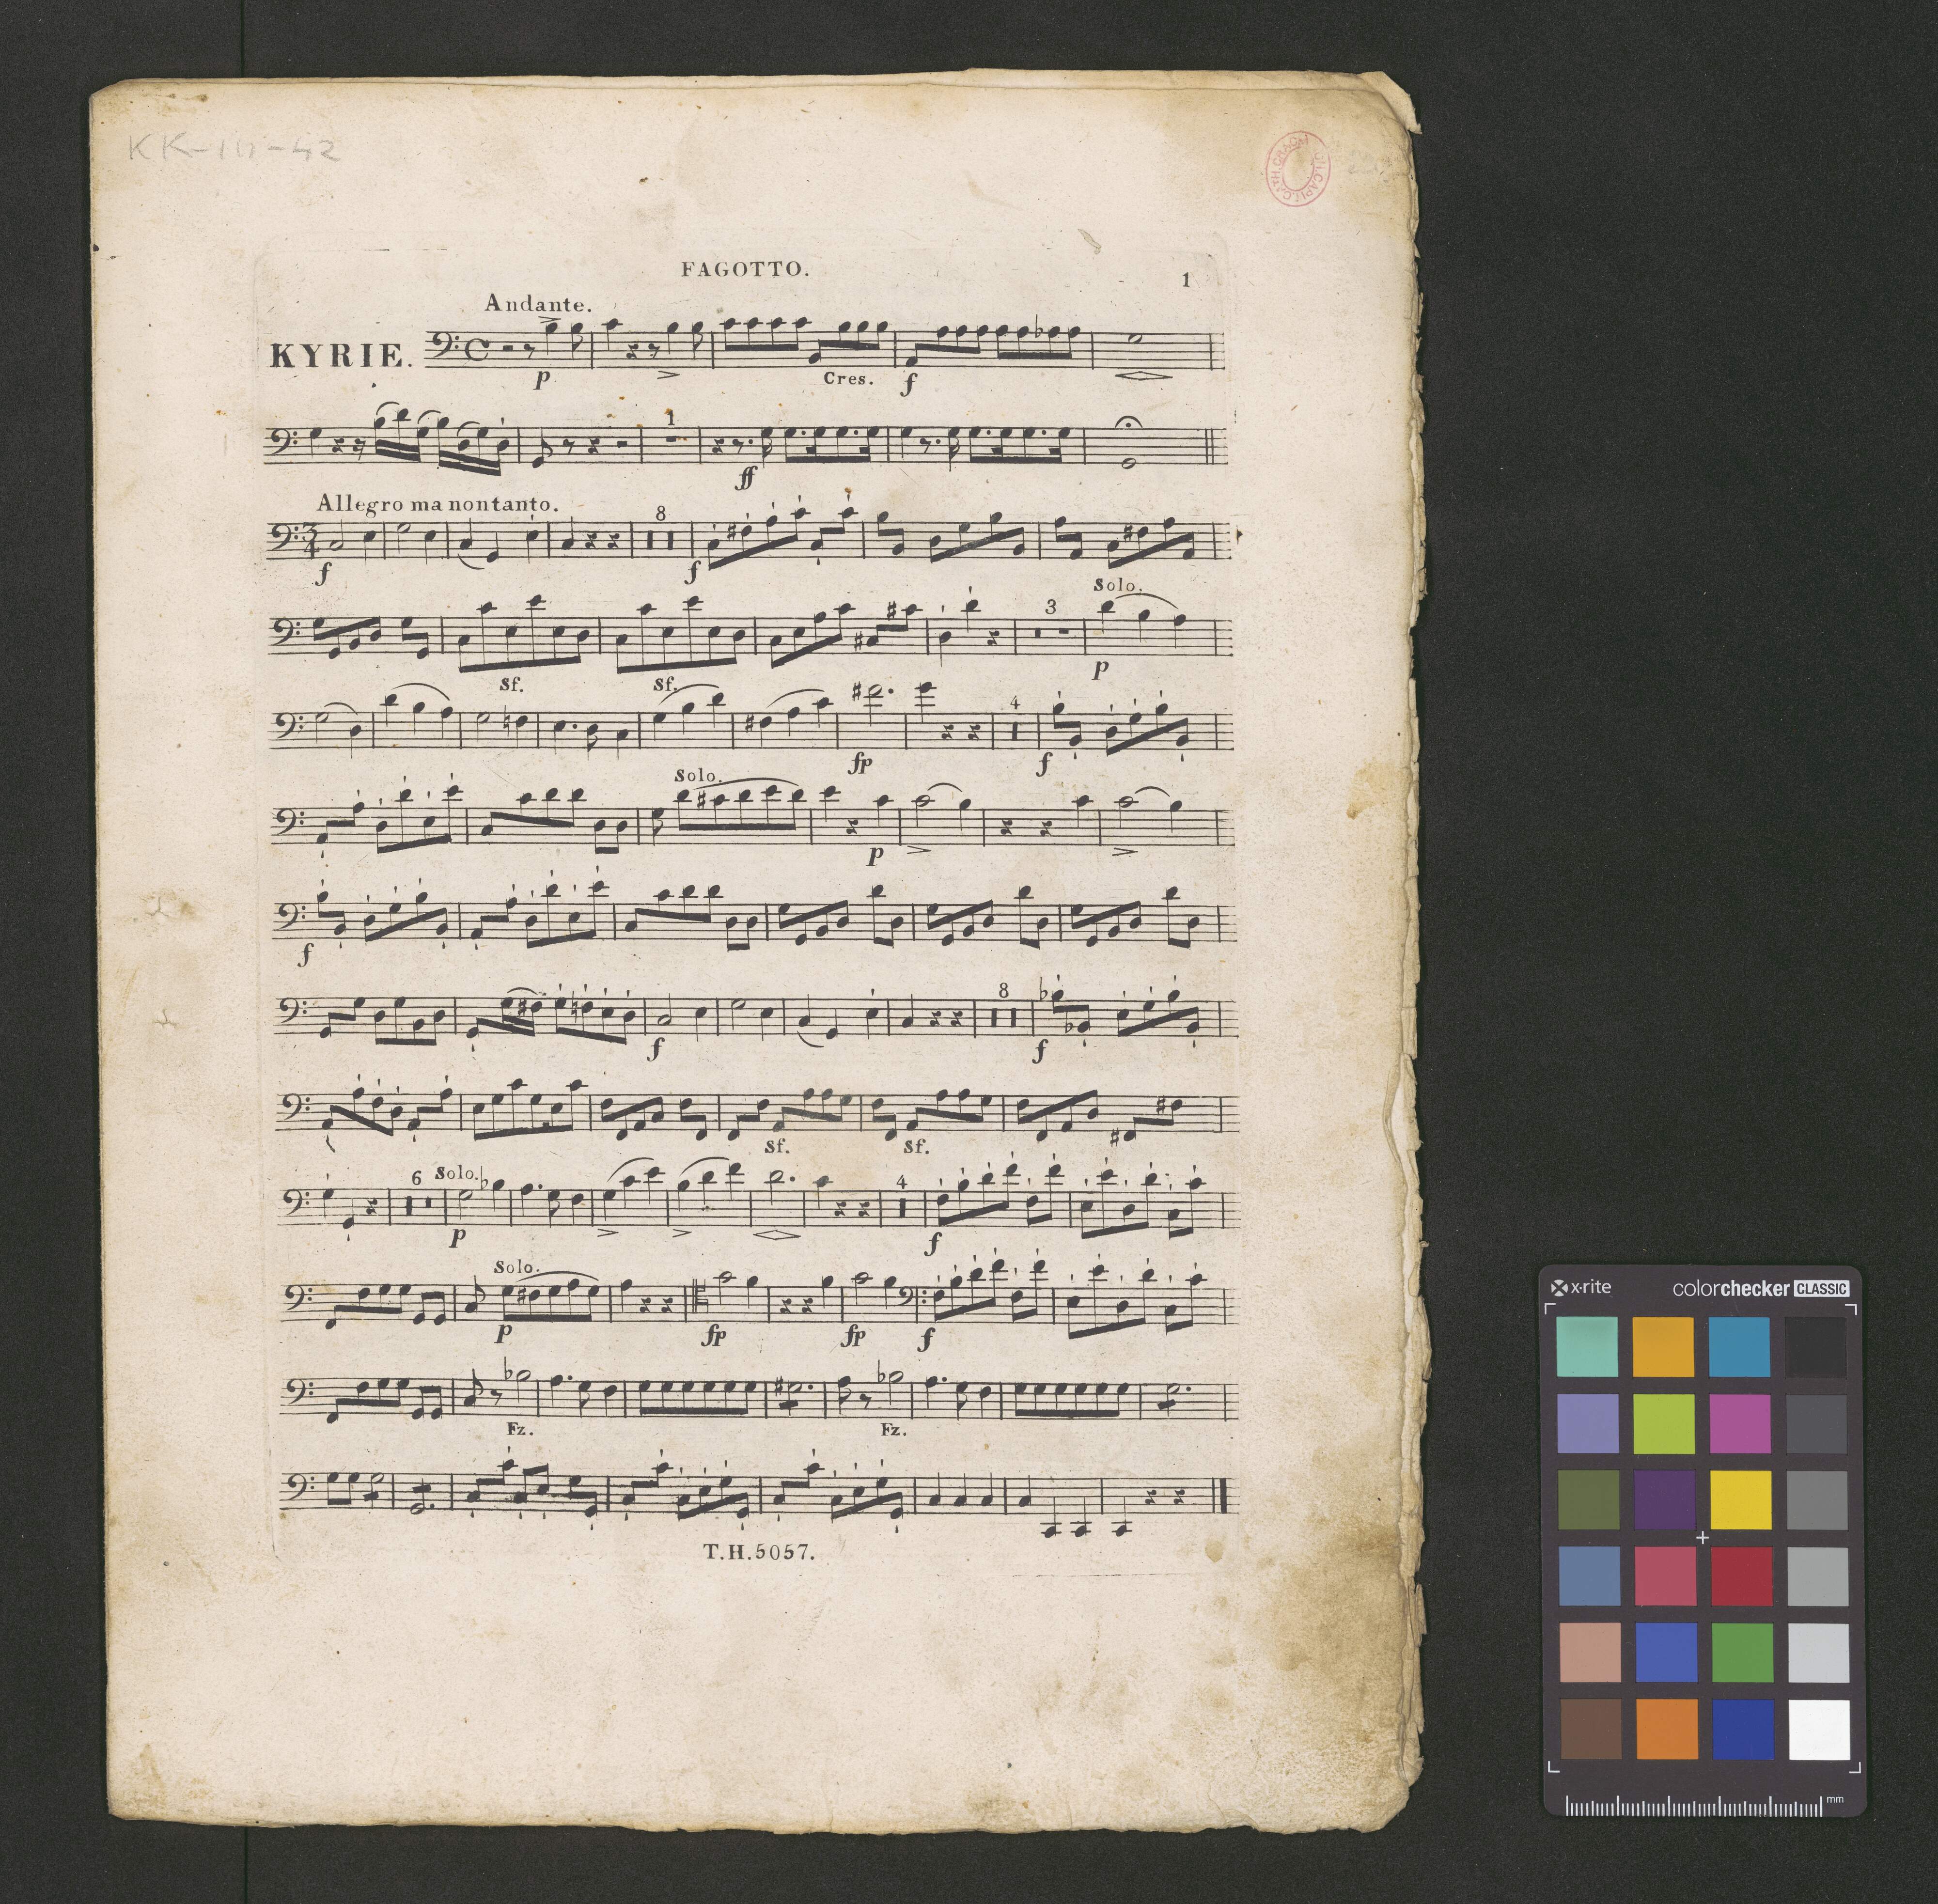 FAGOTTO.
1
Andante.
KYRIE.
p
Cres.
f
1
ff
Allegro ma non tanto.
3
4
8
f
f
Solo.
3
Sf.
Sf.
p
4
fp
f
Solo.
p
f
8
f
f
Sf.
Sf.
6
Solo.
4
p
f
Solo.
p
fp
fp
f
Fz.
Fz.
T.H.5057.
x-rite
colorchecker CLASSIC
mm